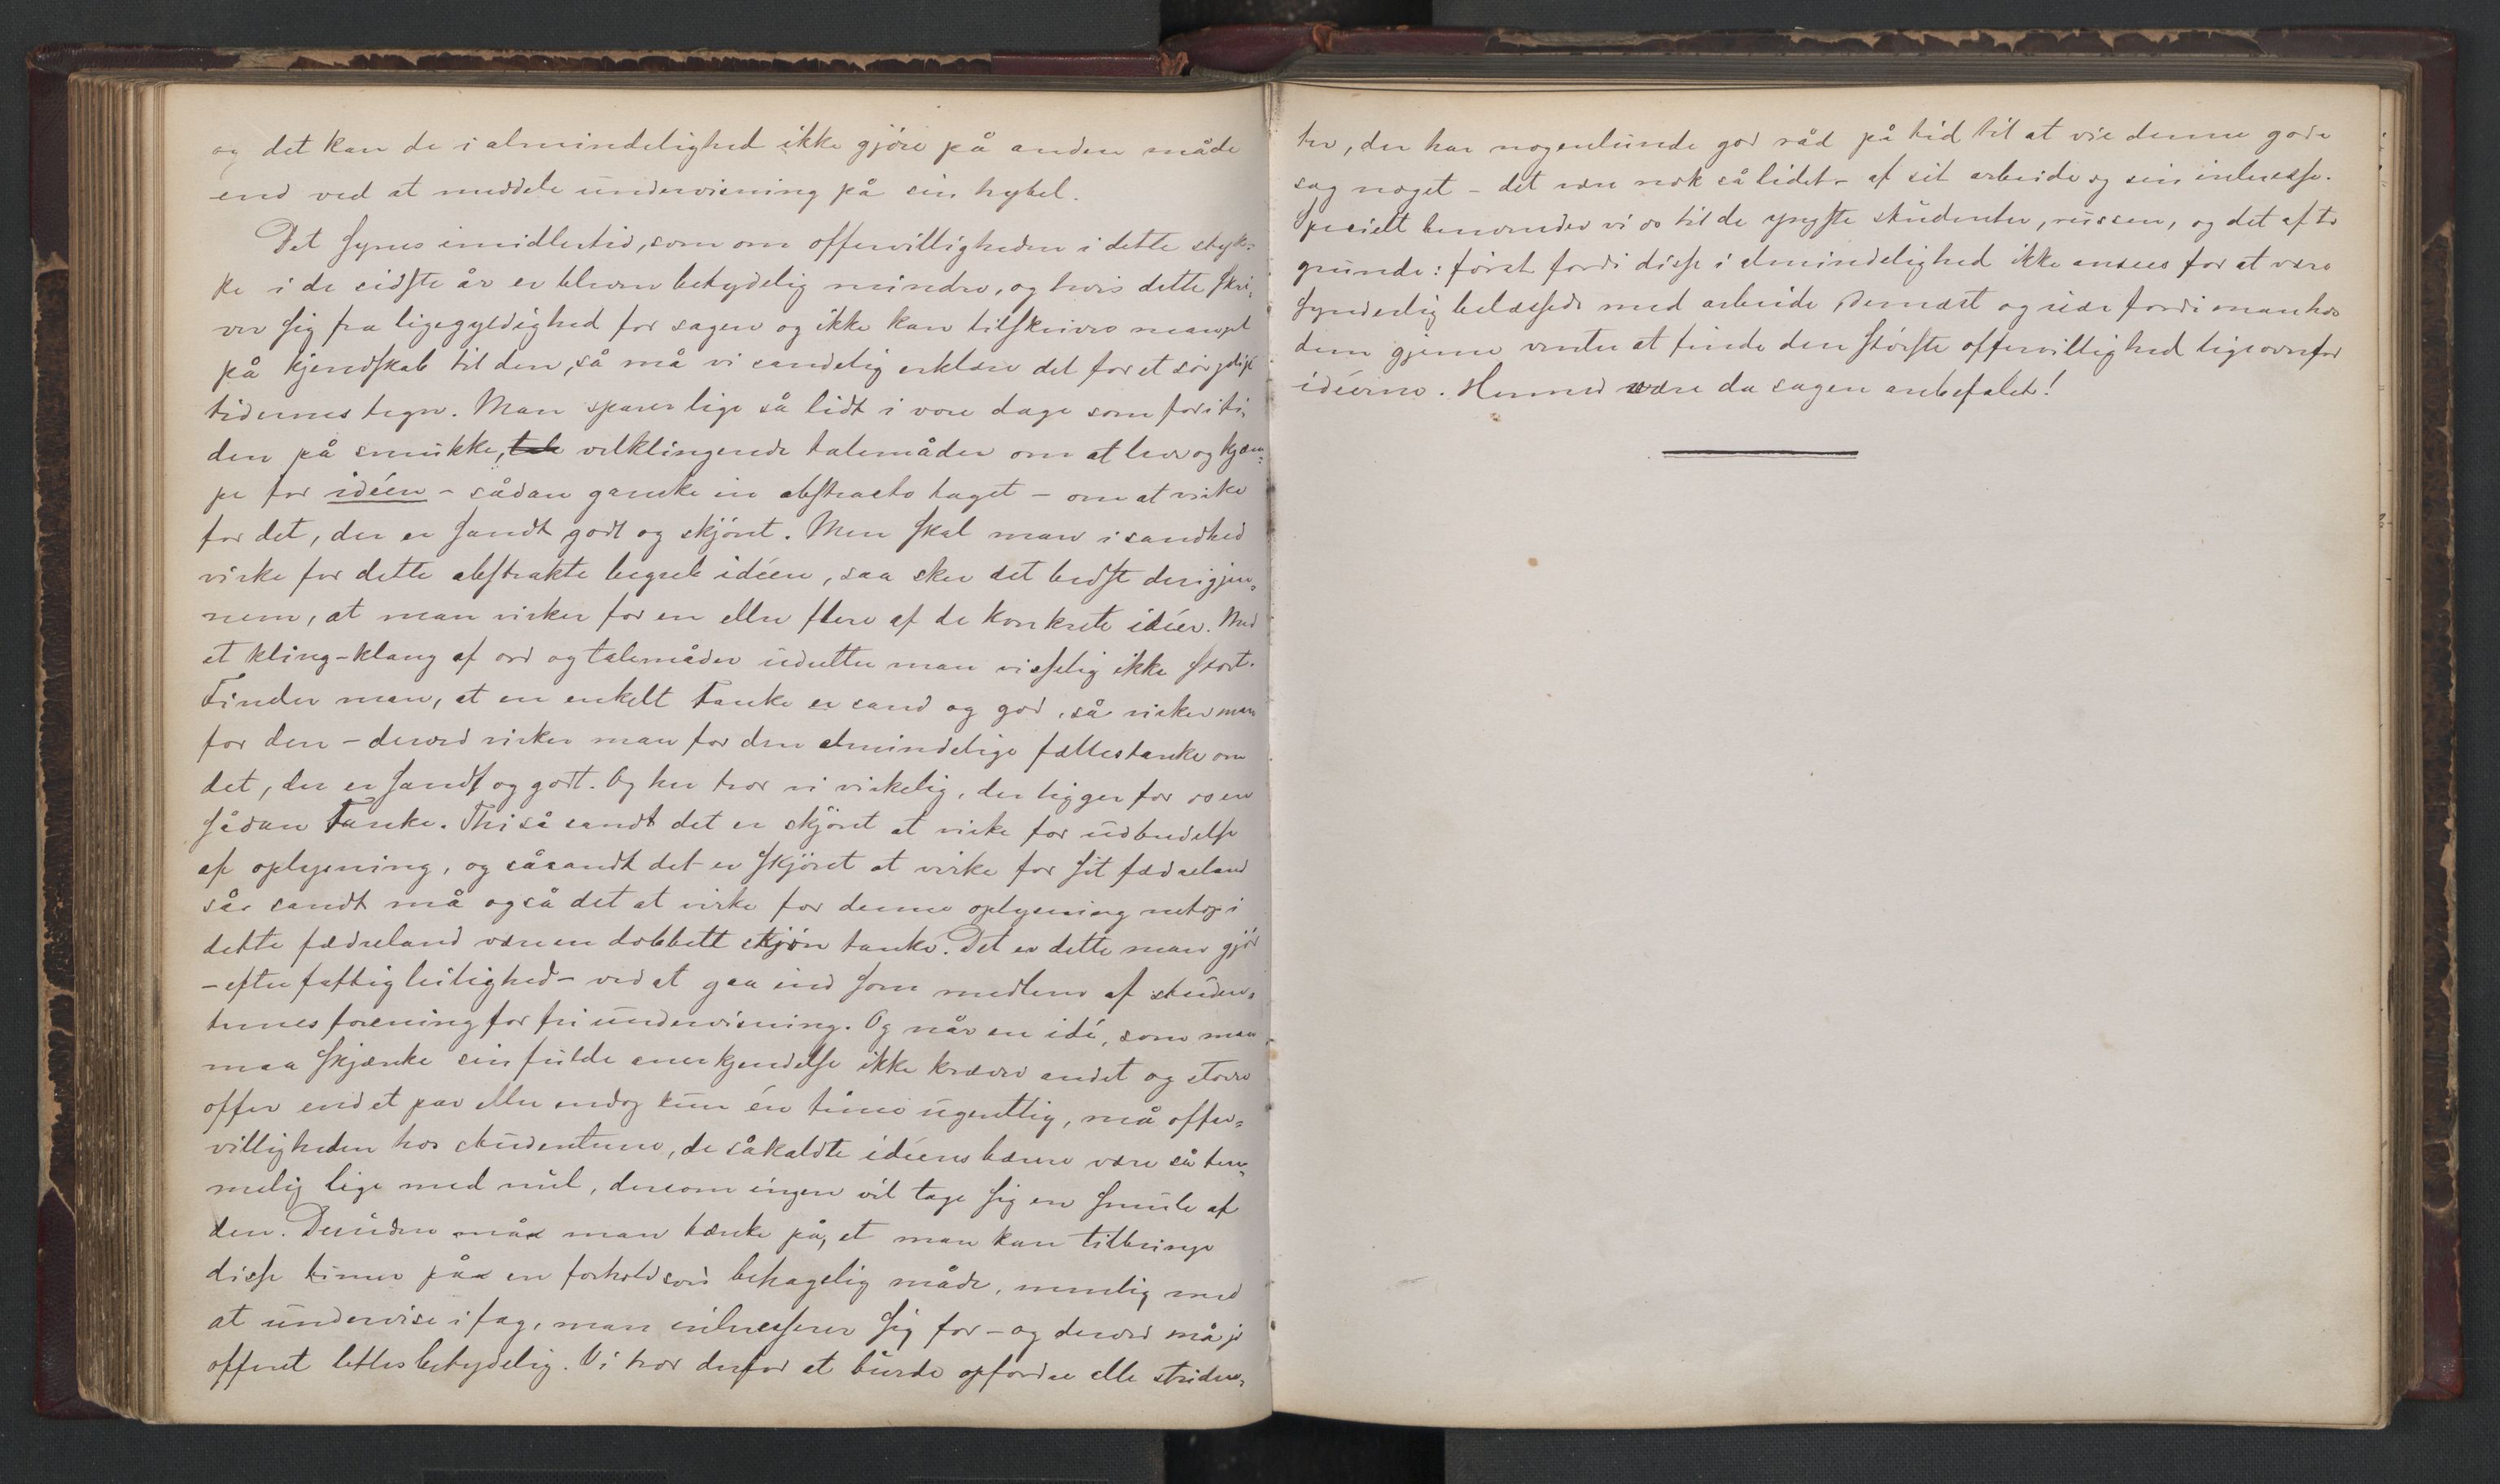 og det kan de i almindelighed ikke gjöre på anden måde
end ved at meddele undervisning på sin hybel.
Det synes imidlertid, som om offervilligheden i dette styk-
ke i de sidste år er bleven betydelig mindre, og hvis dette skri-
ver sig fra ligegyldighed for sagen og ikke kan tilskrives mangel
på kjendskab til den, så må vi sandelig erklære det for et sörgeligt
tidernes tegn. Man sparer lige så lidt i vore dage som foriti-
den på smukke, velklingende talemåder om at leve og kjæm-
pe for idéen - sådan ganske in abstracto taget - om at virke
for det, der er sandt godt og skjönt. Men skal man i sandhed
virke for dette abstrakte begreb idéen, saa sker det bedste derigjen-
nem, at man virker for en eller flere af de konkrete idéer. Med
et kling-klang af ord og talemåder udretter man visselig ikke stort.
Finder man, at en enkelt Tanke er sand og god, så virker man
for den - derved virker man for den almindelige fællestanke om
det, der er sandt og godt. Og her tror vi virkelig, der ligger for os en
sådan Tanke. Thi så sandt det er skjönt at virke for udbredelse
af oplysning, og såsandt det er skjönt at virke for sit fædreland
så sandt må også det at virke for denne oplysning netop i
dette fædreland være en dobbelt skjön tanke. Det er dette man gjör
- efter fattig leilighed - ved at gaa ind som medlem af studen-
ternes forening for fri undervisning. Og når en idé, som man
maa skjænke sin fulde anerkjendelse ikke kræver andet og större
offer end et par eller endog kun én time ugentlig, må offer-
villigheden hos studenterne, de såkaldte idéens bærere være så tem-
melig lige med nul, dersom ingen vil tage sig en smule af
den. Desuden må man tænke på, at man kan tilbringe
disse timer på en forholdsvis behagelig måde, nemlig med
at undervise i fag, man interesserer sig for - og derved må jo
offeret lettes betydelig. Vi tror derfor at burde opfordre alle studen-
ter, der har nogenlunde god råd på tid til at vie denne gode
sag noget - det være nok så lidet - af sit arbeide og sin interesse.
Specielt henvender vi os til de yngste studenter, russen, og det af to
grunde: först fordi disse i almindelighed ikke ansees for at være
synderlig belæssede med arbeide, dernæst og især fordi man hos
dem gjerne venter at finde den störste offervillighed ligeoverfor
idéerne. Hermed være da sagen anbefalet!